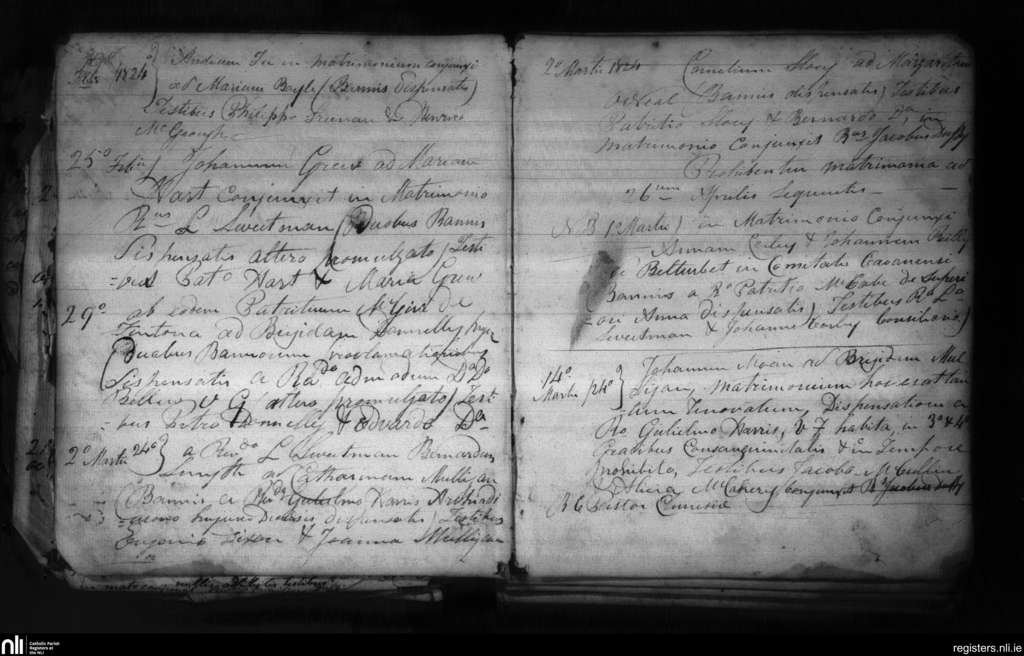 Feb 1824
Andream in matrimonium conjunxi
ad Mariam Boyle (Bannis dispensatis)
Testibus Philippo & Henrico
McGeough
25o Feb Johannem Grew ad Mariam
Hart Conjunxit in Matrimonio
Rdus L Sweetman (Duobus Bannis
Dispensatis altero promulgato) Testi
=bus Pato Hart & Maria Grew
29o ab eodem Patritium de
Tintona ad Brigidam Donnelly
(Duobus Bannorum proclamationibus
Dispensatis a Rdo admodum Do
Bellew V G altero promulgato) Test
=bus Petro Donnelly & Edvardo Do
2o Martii 24o a Revdo L Sweetman Bernardum
ad Catharinam Mulligan
(Bannis a Rdo Gulielmo Harris Archidi
=acono hujus Diocesis dispensatis) Testibus
Eugenio & Joanna Mulligan
2o Martii 1824 Cornelium ad Margaritam
O'Neal Bannis dispensatis) Testibus
Patritio & Bernardo Do, in
Matrimonio Conjunxit Rdus Jacobus Duffy
Prohibentur matrimonia ad
26um Aprilis Sequentis
N B 1o Martii) in Matrimonio Conjunxi
Annam & Johannem Reilly
de Belturbet in Comitatu Cavanensi
Bannis a Ro Patritio McCabe de Superi
ori Anna dispensatis) Testibus Ro Lo
Sweetman & Johanne
14o Martii 24o
Johannem Moan ad Brigidam Mul
ligan, matrimonium hoc erat tan
tum Renovatum, Dispensatione a
Rdo Gulielmo Harris, V F habita, in 3o & 4o
Gradibus Consanguinitatis & in Tempore
prohibito, Testibus Jacobo
Alicia conjunxit Rs Jacobus Duffy
nli Catholic Parish
Registers at
the NLI
registers.nli.ie